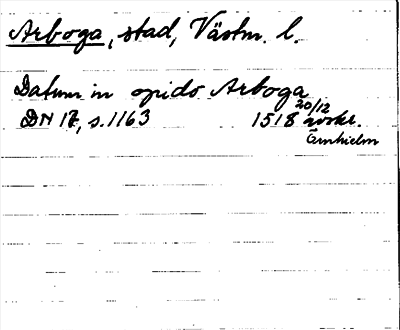 Arboga, stad, Västm. l.
Datum in opido Arboga
DN 17, s. 1163 1518 20/12 avskr.
Örnhielm